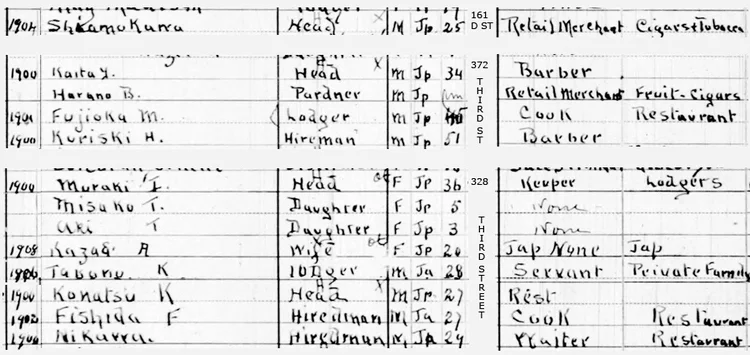 1904 Shiamokurra Head x M Jp 25 161 D ST Retail Merchant Cigars+Tobacco
1900 Kaita Y. Head x M Jp 34 372 THIRD ST Barber
Harano B. Pardner m Jp Retail Merchant Fruit-Cigars
1901 Fujioka M. Lodger m Jp Cook Restaurant
1900 Kuriski H. Hireman m Jp 51 Barber
1900 Muraki I. Head F Jp 36 328 THIRD STREET Keeper Lodgers
Misako T. Daughter F Jp 5 None
Aki T Daughter F Jp 3 None
1908 Kazadi A Wife F Jp 20 Jap None Jap
K Lodger m Ja 28 Servant Private Family
1900 Konatsu K Head x M Jp 27 Rest
1902 Fishida F Hiredman M Ja 27 Cook Restaurant
Nikavra. Hiredman Ja 29 Waiter Restaurant